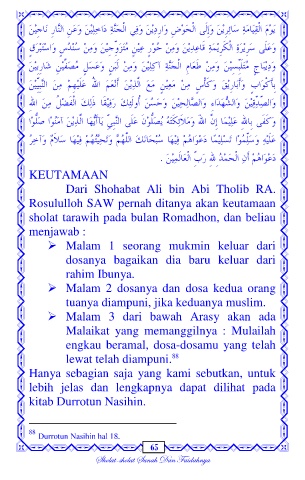 يَوْمَ الْقِيَامَةِ سَائِرِيْنَ وَإِلَى الْحَوْضِ وَارِدِيْنَ وَفِي الْجَنَّةِ دَاخِلِيْنَ وَعَنِ النَّارِ نَاجِيْنَ
وَعَلَى سَرِيْرَةِ الْكَرِيْمَةِ قَاعِدِيْنَ وَمِنْ حُوْرٍ عِيْنٍ مُتَزَوِّجِيْنَ وَمِنْ سُنْدُسٍ وَاِسْتَبْرَقٍ
وَدِيْبَاجٍ مُتَلَبِّسِيْنَ وَمِنْ طَعَامِ الْجَنَّةِ آكِلِيْنَ وَمِنْ لَبَنٍ وَعَسَلٍ مُصَفَّيْنِ شَارِبِيْنَ
بِأَكْوَابٍ وَأَبَارِيْقَ وَكَأْسٍ مِنْ مَعِيْنٍ مَعَ الَّذِيْنَ أَنْعَمَ اللهُ عَلَيْهِمْ مِنَ النَّبِيِّيْنَ
وَالصِّدِّيْقِيْنَ وَالشُّهَدَاءِ وَالصَّالِحِيْنَ وَحَسُنَ أُولَئِكَ رَفِيْقًا ذَلِكَ الْفَضْلُ مِنَ اللهِ
وَكَفَى بِاللهِ عَلِيْمًا إِنَّ اللهَ وَمَلَائِكَتَهُ يُصَلُّوْنَ عَلَى النَّبِيِّ يَاأَيُّهَا الَّذِيْنَ آمَنُوْا صَلُّوْا
عَلَيْهِ وَسَلِّمُوْا تَسْلِيْمًا دَعْوَاهُمْ فِيْهَا سُبْحَانَكَ اللَّهُمَّ وَتَحِيَّتُهُمْ فِيْهَا سَلَامٌ وَآخِرُ
دَعْوَاهُمْ أَنِ الْحَمْدُ لِلَّهِ رَبِّ الْعَالَمِيْنَ .
KEUTAMAAN
Dari Shohabat Ali bin Abi Tholib RA.
Rosululloh SAW pernah ditanya akan keutamaan
sholat tarawih pada bulan Romadhon, dan beliau
menjawab :
➢ Malam 1 seorang mukmin keluar dari
dosanya bagaikan dia baru keluar dari
rahim Ibunya.
➢ Malam 2 dosanya dan dosa kedua orang
tuanya diampuni, jika keduanya muslim.
➢ Malam 3 dari bawah Arasy akan ada
Malaikat yang memanggilnya : Mulailah
engkau beramal, dosa-dosamu yang telah
lewat telah diampuni.88
Hanya sebagian saja yang kami sebutkan, untuk
lebih jelas dan lengkapnya dapat dilihat pada
kitab Durrotun Nasihin.
88 Durrotun Nasihin hal 18.
65
Sholat-sholat Sunah Dan Faidahnya